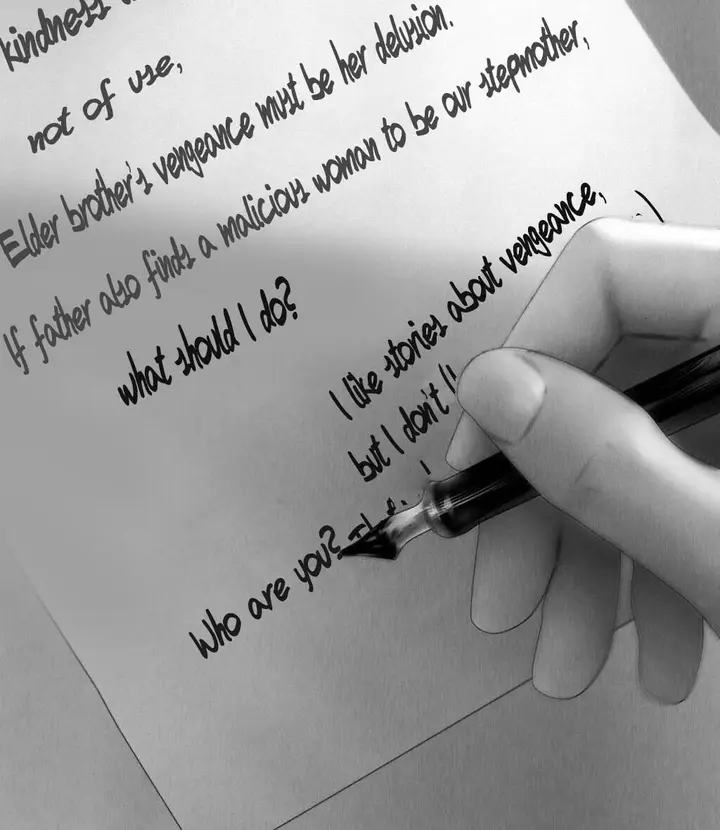 kindness
not of use,
Elder brother's vengeance must be her delusion.
If father also finds a malicious woman to be our stepmother,
what should I do?
I like stories about vengeance,
but I don't
Who are you?